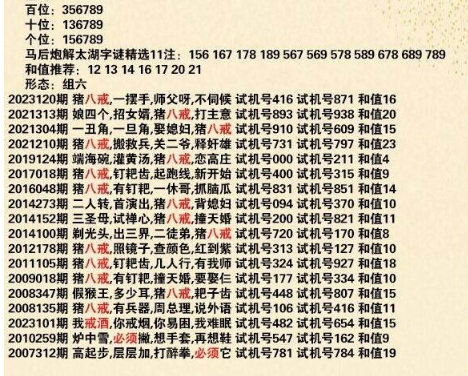 百位：356789
十位：136789
个位：156789
马后炮解太湖字谜精选11注：156 167 178 189 567 569 578 589 678 689 789
和值推荐：12 13 14 16 17 20 21
形态：组六
2023120期 猪八戒,一摆手,师父呀,不伺候 试机号416 试机号871 和值16
2021313期 娘四个,招女婿,猪八戒,打主意 试机号893 试机号938 和值20
2021304期 一丑角,一旦角,娶媳妇,猪八戒 试机号910 试机号609 和值15
2021210期 猪八戒,搬救兵,关二爷,释奸雄 试机号731 试机号797 和值23
2019124期 端海碗,灌黄汤,猪八戒,恋高庄 试机号000 试机号211 和值4
2017018期 猪八戒,钉耙齿,起跑线,新开始 试机号400 试机号315 和值9
2016048期 猪八戒,有钉耙,一休哥,抓脑瓜 试机号831 试机号851 和值14
2014273期 二人转,首演出,猪八戒,背媳妇 试机号094 试机号370 和值10
2014152期 三圣母,试禅心,猪八戒,撞天婚 试机号200 试机号821 和值11
2014100期 剃光头,出三界,二徒弟,猪八戒 试机号720 试机号170 和值8
2012178期 猪八戒,照镜子,查颜色,红到紫 试机号313 试机号127 和值10
2011105期 猪八戒,钉耙齿,几人行,有我师 试机号324 试机号927 和值18
2009018期 猪八戒,有钉耙,撞天婚,要娶仨 试机号177 试机号334 和值10
2008347期 假猴王,多少耳,猪八戒,耙子齿 试机号448 试机号807 和值15
2008135期 猪八戒,有兵器,周总理,说外语 试机号106 试机号416 和值11
2023101期 我戒酒,你戒烟,你易困,我难眠 试机号482 试机号654 和值15
2010259期 炉中雪,必须撇,想手套,再想鞋 试机号547 试机号162 和值9
2007312期 高起步,层层加,打醉拳,必须它 试机号781 试机号784 和值19